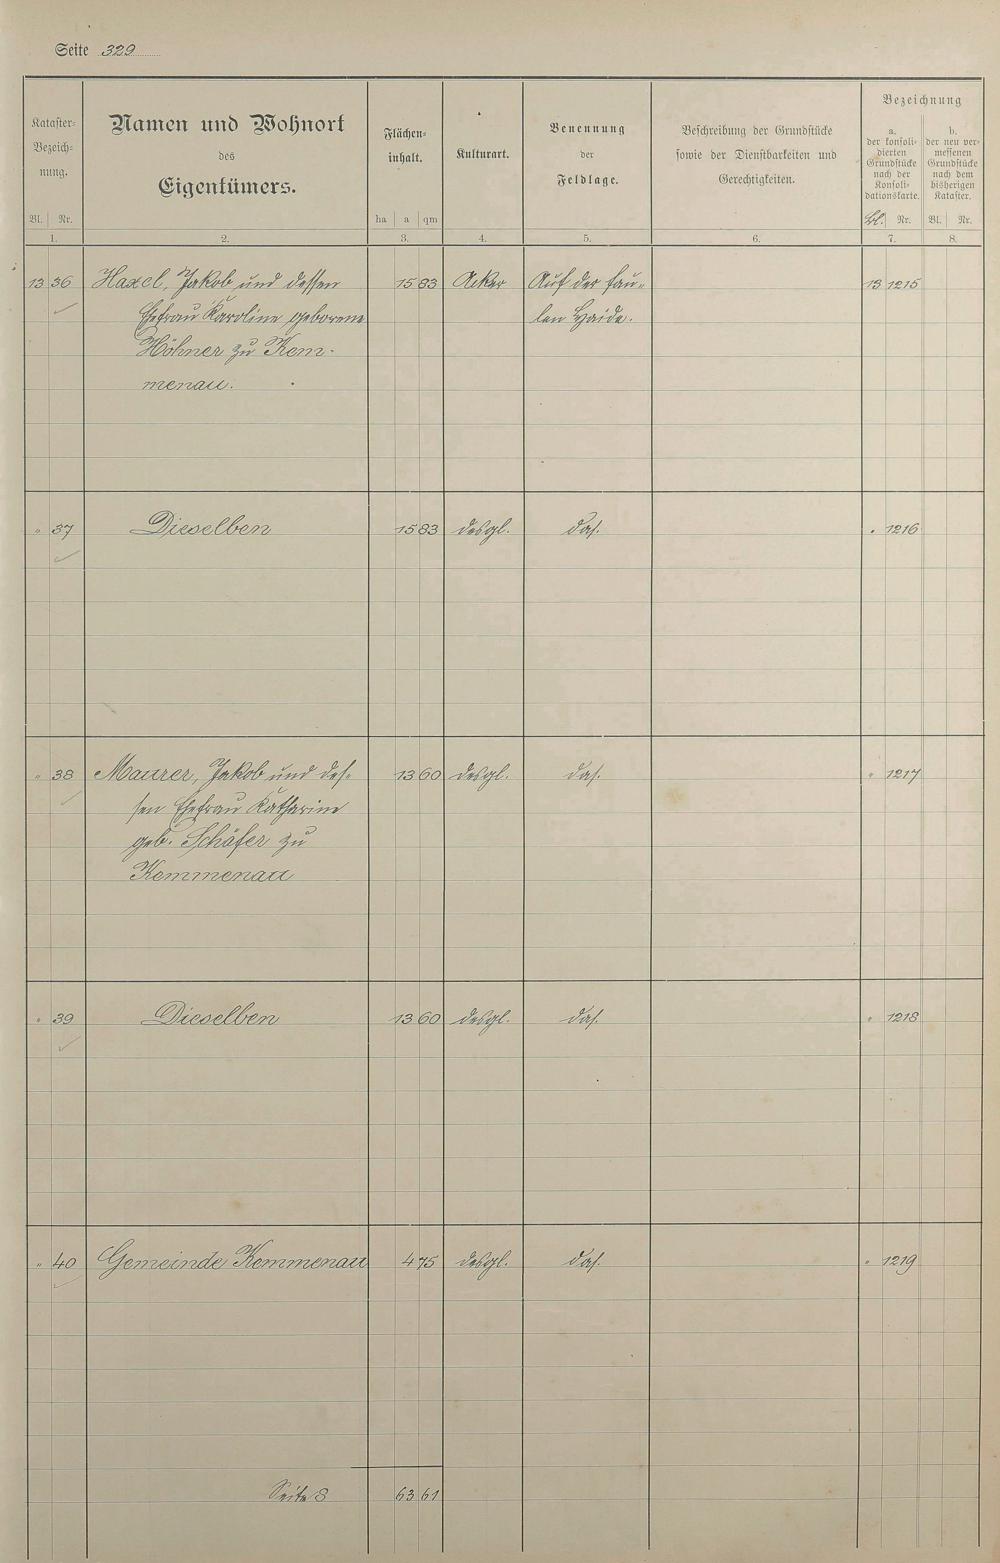 Seite 329
Kataster-
Bezeich-
nung.
Bl. Nr.
1.
Namen und Wohnort
des
Eigentümers.
2.
Flächen-
inhalt.
ha a qm
3.
Kulturart.
4.
Benennung
der
Feldlage.
5.
Beschreibung der Grundstücke
sowie der Dienstbarkeiten und
Gerechtigkeiten.
6.
Bezeichnung
a.
der konsoli-
dierten
Grundstücke
nach der
Konsoli-
dationskarte.
Bl. Nr.
7.
b.
der neu ver-
messenen
Grundstücke
nach dem
bisherigen
Kataster.
Bl. Nr.
8.
13 36 Haxel, Jakob und dessen 15 83 Acker Auf der fau- 13 1215
Ehefrau Karoline geborene len Haide.
Höhner zu Kem-
menau.
" 37 Dieselben 15 83 desgl. das. " 1216
" 38 Maurer, Jakob und des- 13 60 desgl. das. " 1217
sen Ehefrau Katharine
geb. Schäfer zu
Kemmenau
" 39 Dieselben 13 60 desgl. das. " 1218
" 40 Gemeinde Kemmenau 4 75 desgl. das. " 1219
Seite S 63 61